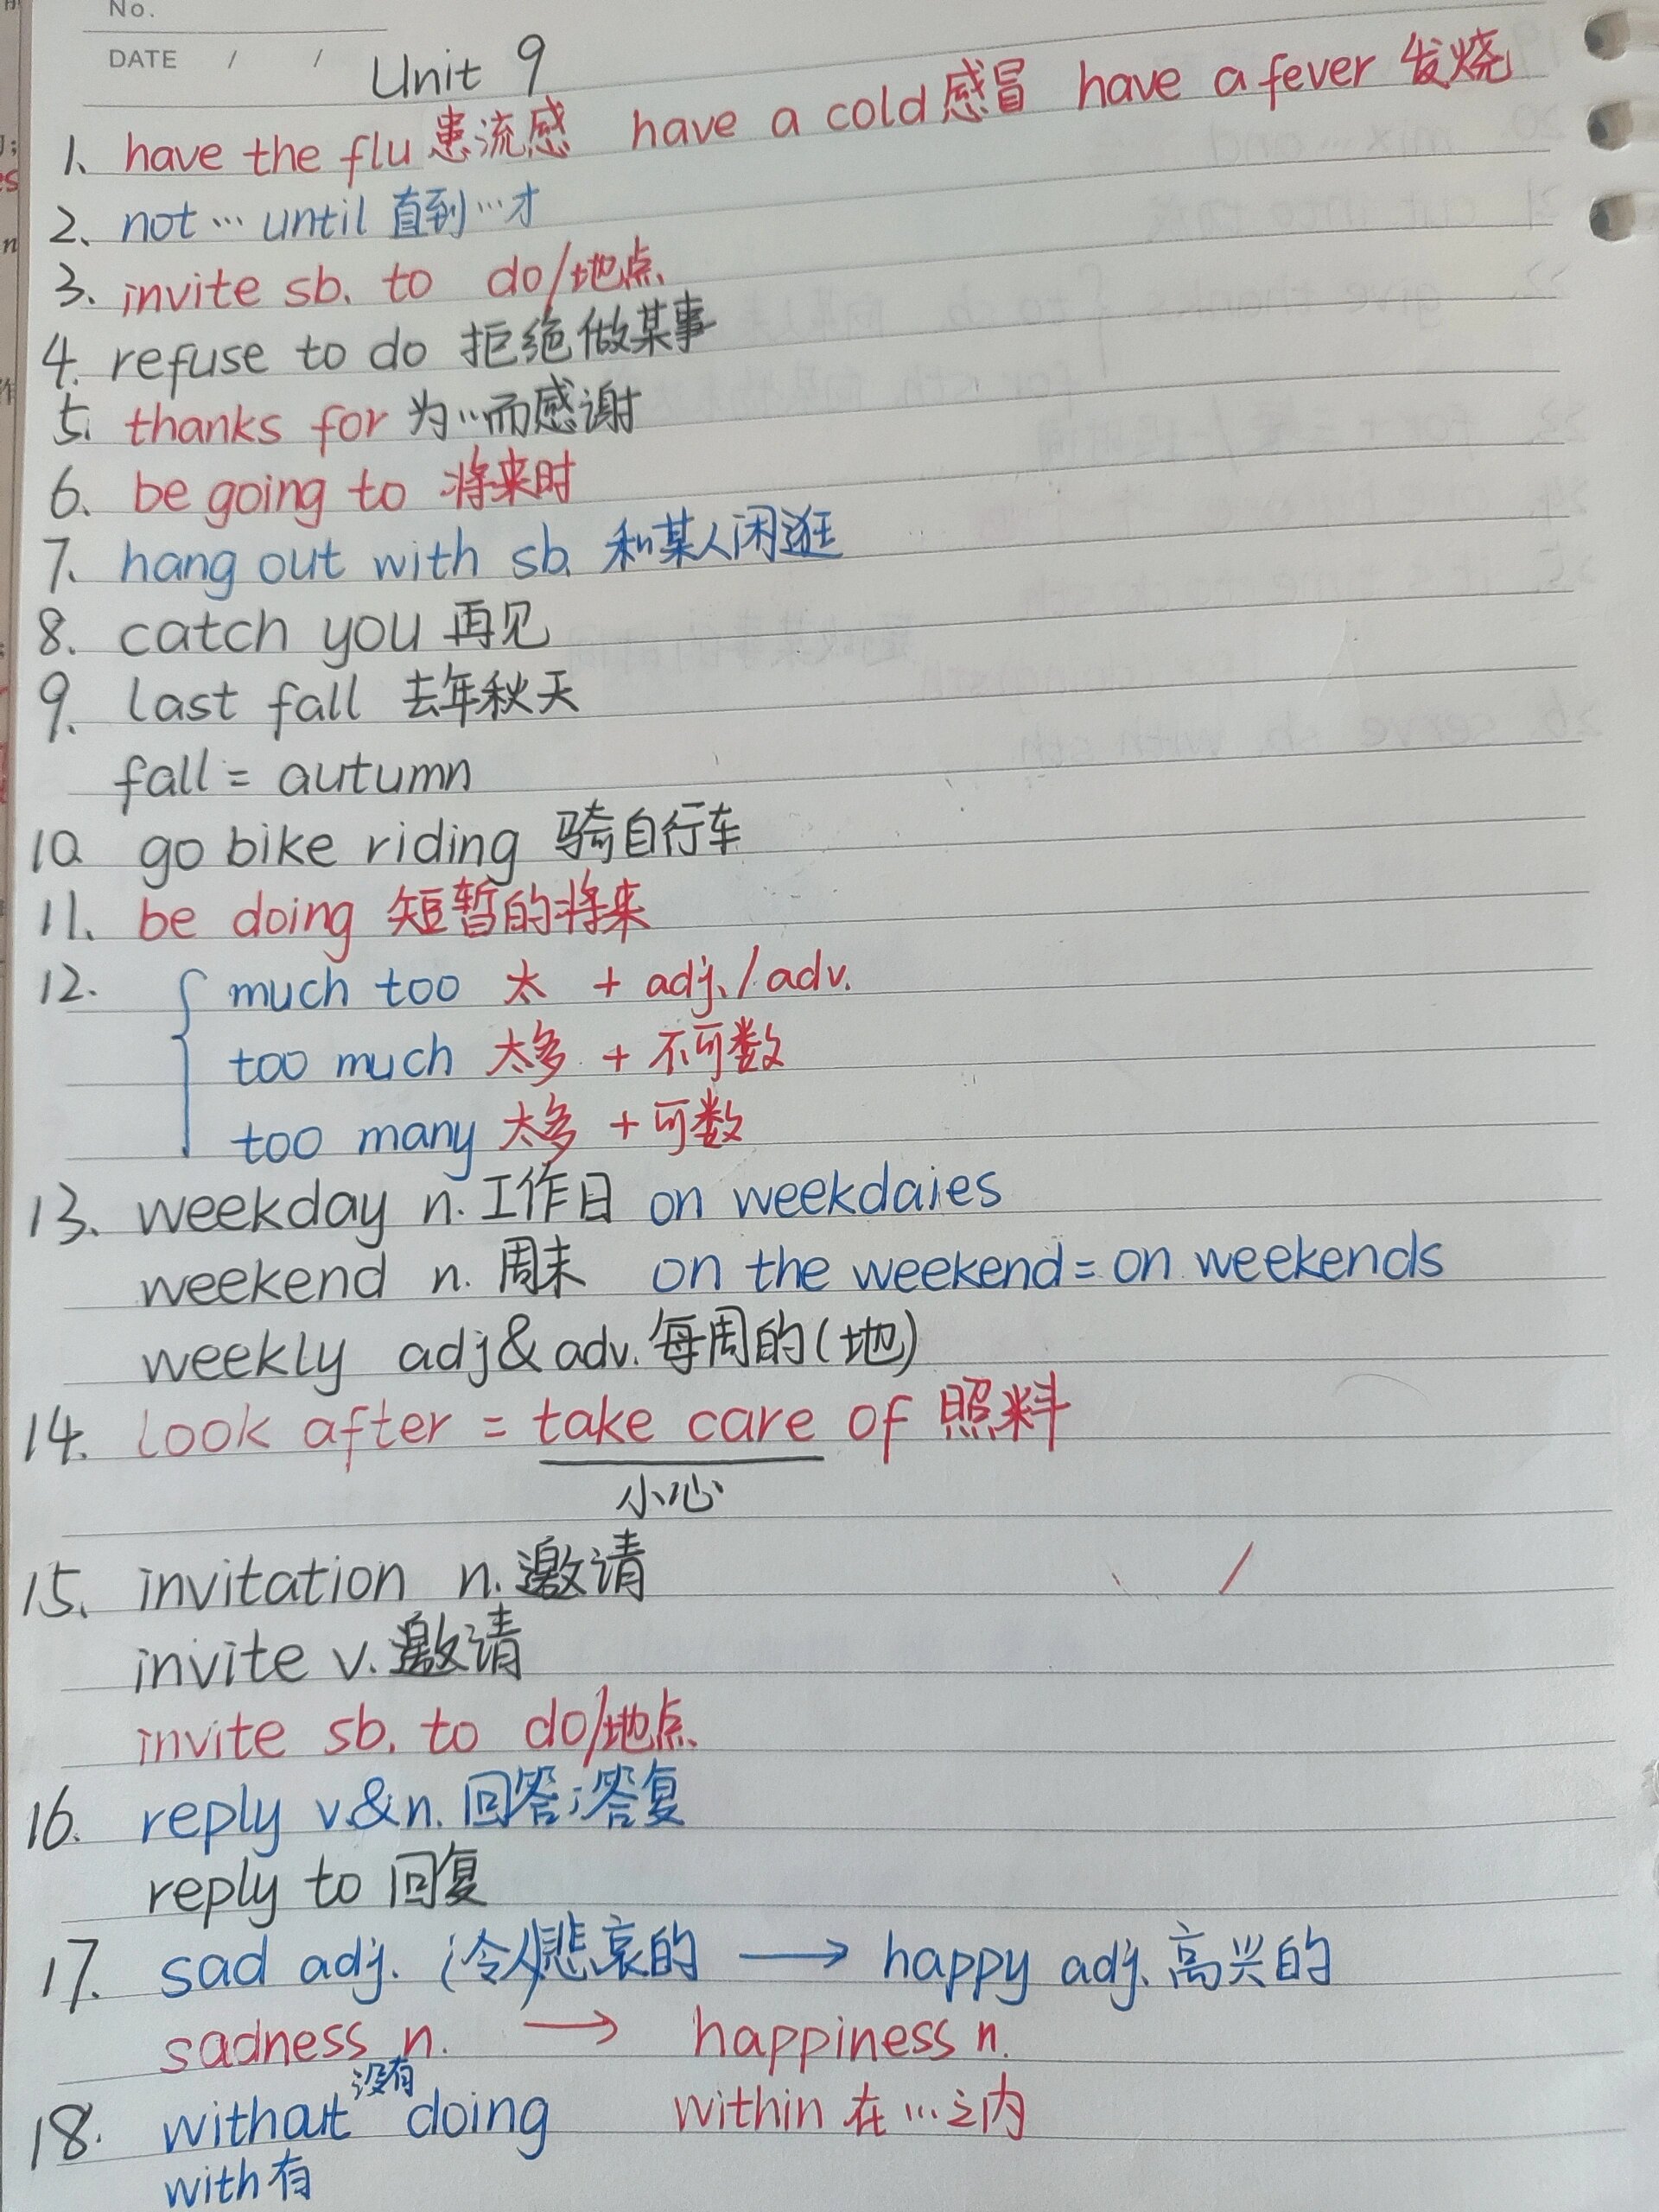 No.
DATE / /
Unit 9
1、have the flu 患流感 have a cold 感冒 have a fever 发烧
2、not … until 直到…才
3. invite sb. to do/地点
4. refuse to do 拒绝做某事
5. thanks for 为…而感谢
6. be going to 将来时
7. hang out with sb. 和某人闲逛
8. catch you 再见
9. last fall 去年秋天
fall = autumn
10. go bike riding 骑自行车
11. be doing 短暂的将来
12. much too 太 + adj./adv.
too much 太多 + 不可数
too many 太多 + 可数
13. weekday n. 工作日 on weekdaies
weekend n. 周末 on the weekend = on weekends
weekly adj & adv. 每周的(地)
14. look after = take care of 照料
小心
15. invitation n. 邀请
invite v. 邀请
invite sb. to do/地点
16. reply v.&n. 回答;答复
reply to 回复
17. sad adj. (令人)悲哀的 → happy adj. 高兴的
sadness n. → happiness n.
没有
18. without doing within 在…之内
with 有